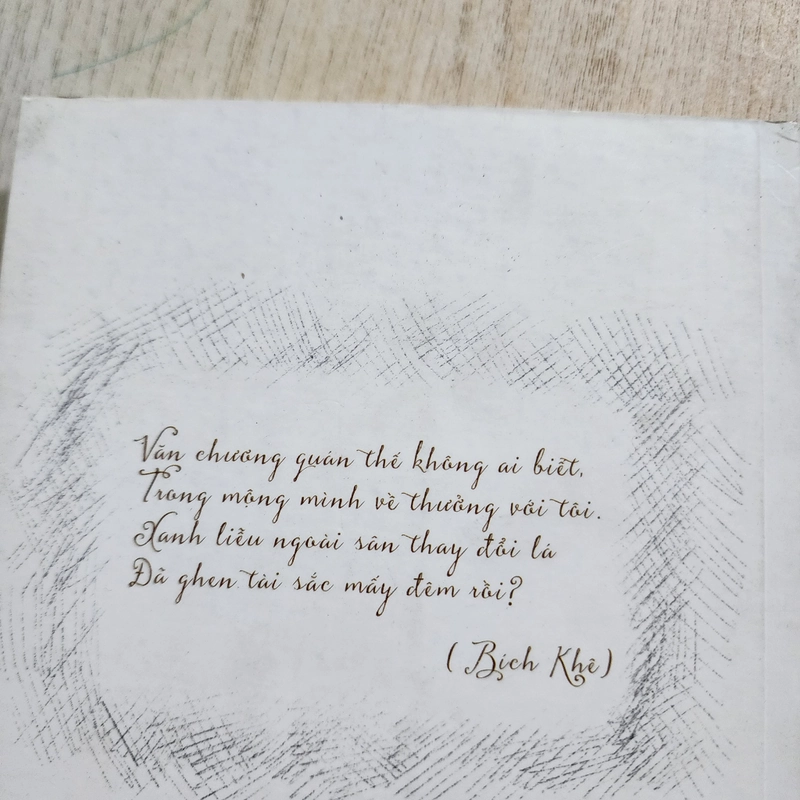 Văn chương quán thế không ai biết,
Trong mộng mình về thưởng với tôi.
Xanh liễu ngoài sân thay đổi lá
Đã ghen tài sắc mấy đêm rồi?
( Bích Khê)